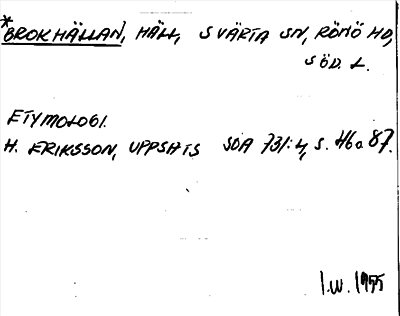 *BROKHÄLLAN, HÄLL, SVÄRTA SN, RÖNÖ HD,
SÖD. L.
ETYMOLOGI.
H. ERIKSSON, UPPSATS SOA 731:4, S. 46 o 87.
I.W. 1955